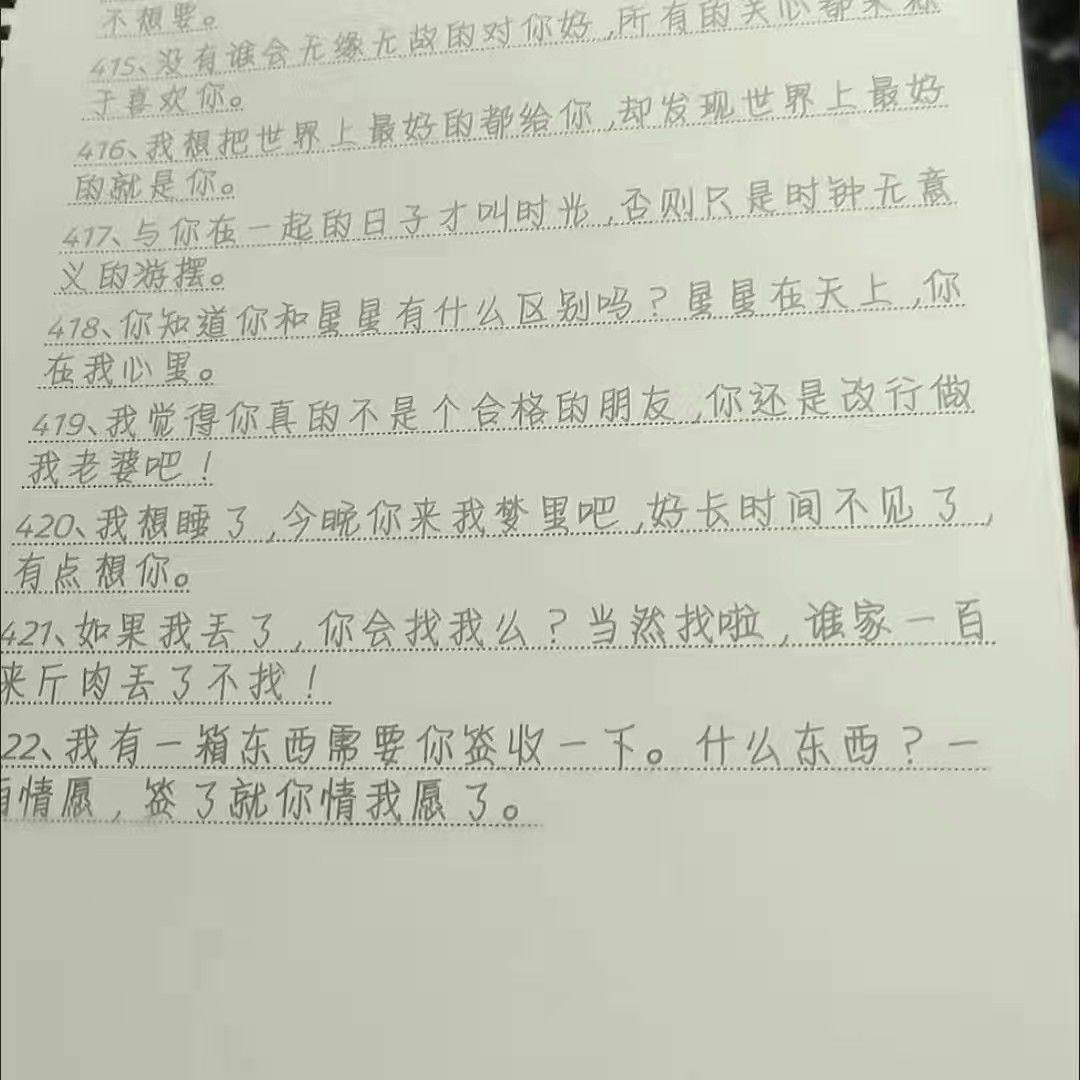 不想要。
415、没有谁会无缘无故的对你好,所有的关心都来源
于喜欢你。
416、我想把世界上最好的都给你,却发现世界上最好
的就是你。
417、与你在一起的日子才叫时光,否则只是时钟无意
义的游摆。
418、你知道你和星星有什么区别吗?星星在天上,你
在我心里。
419、我觉得你真的不是个合格的朋友,你还是改行做
我老婆吧!
420、我想睡了,今晚你来我梦里吧,好长时间不见了,
有点想你。
421、如果我丢了,你会找我么?当然找啦,谁家一百
来斤肉丢了不找!
22、我有一箱东西需要你签收一下。什么东西?一
厢情愿,签了就你情我愿了。